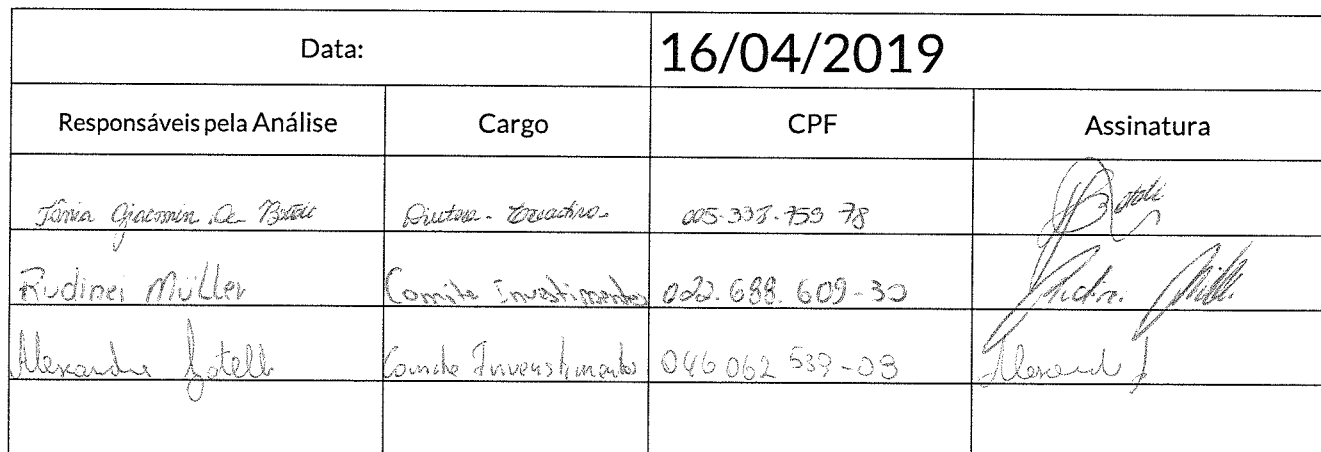 Data: 16/04/2019
Responsáveis pela Análise Cargo CPF Assinatura
Tânia Giacomin De Bortoli Diretora - Executiva 78
Rudinei Müller Comite Investimentos 022.688.609-30
Alexandre Comite Investimentos 046 062 539-03